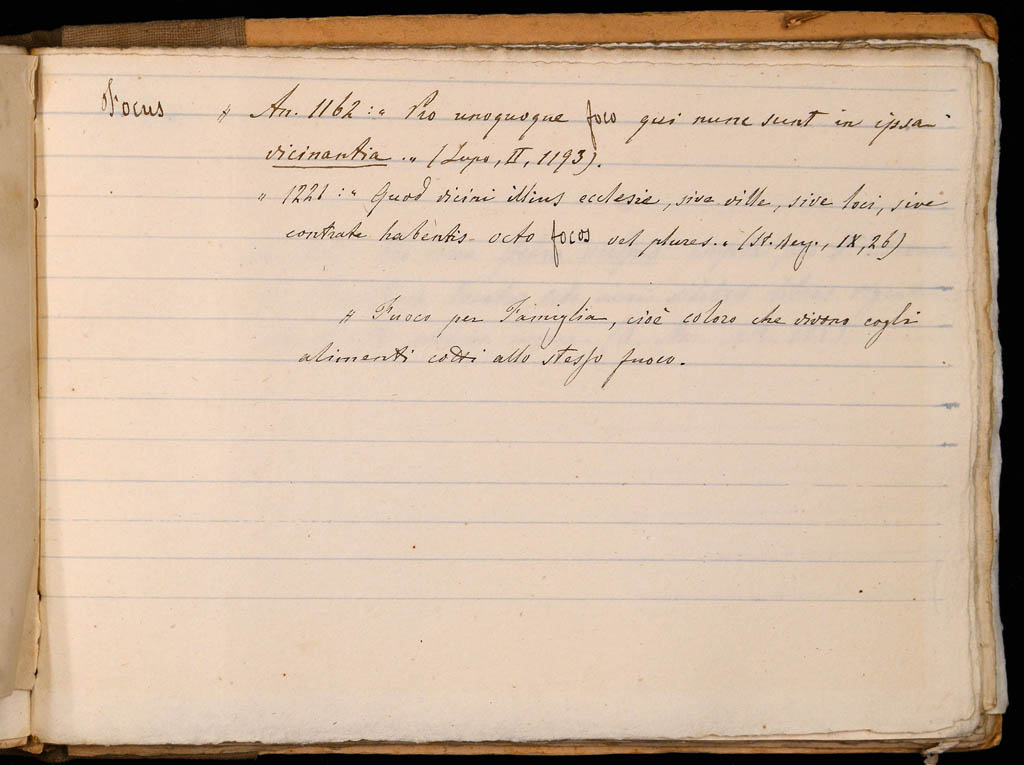 Focus „ An. 1162 : „ Pro unoquoque foco qui nunc sunt in ipsa
vicinantia . „ (Lupo, II, 1193).
„ 1221 : „ Quod vicini illius ecclesie, sive ville, sive loci, sive
contrate habentis octo focos vel plures. „ (St. , IX, 26)
„ Fuoco per Famiglia, cioè coloro che vivono cogli
alimenti cotti allo stesso fuoco.